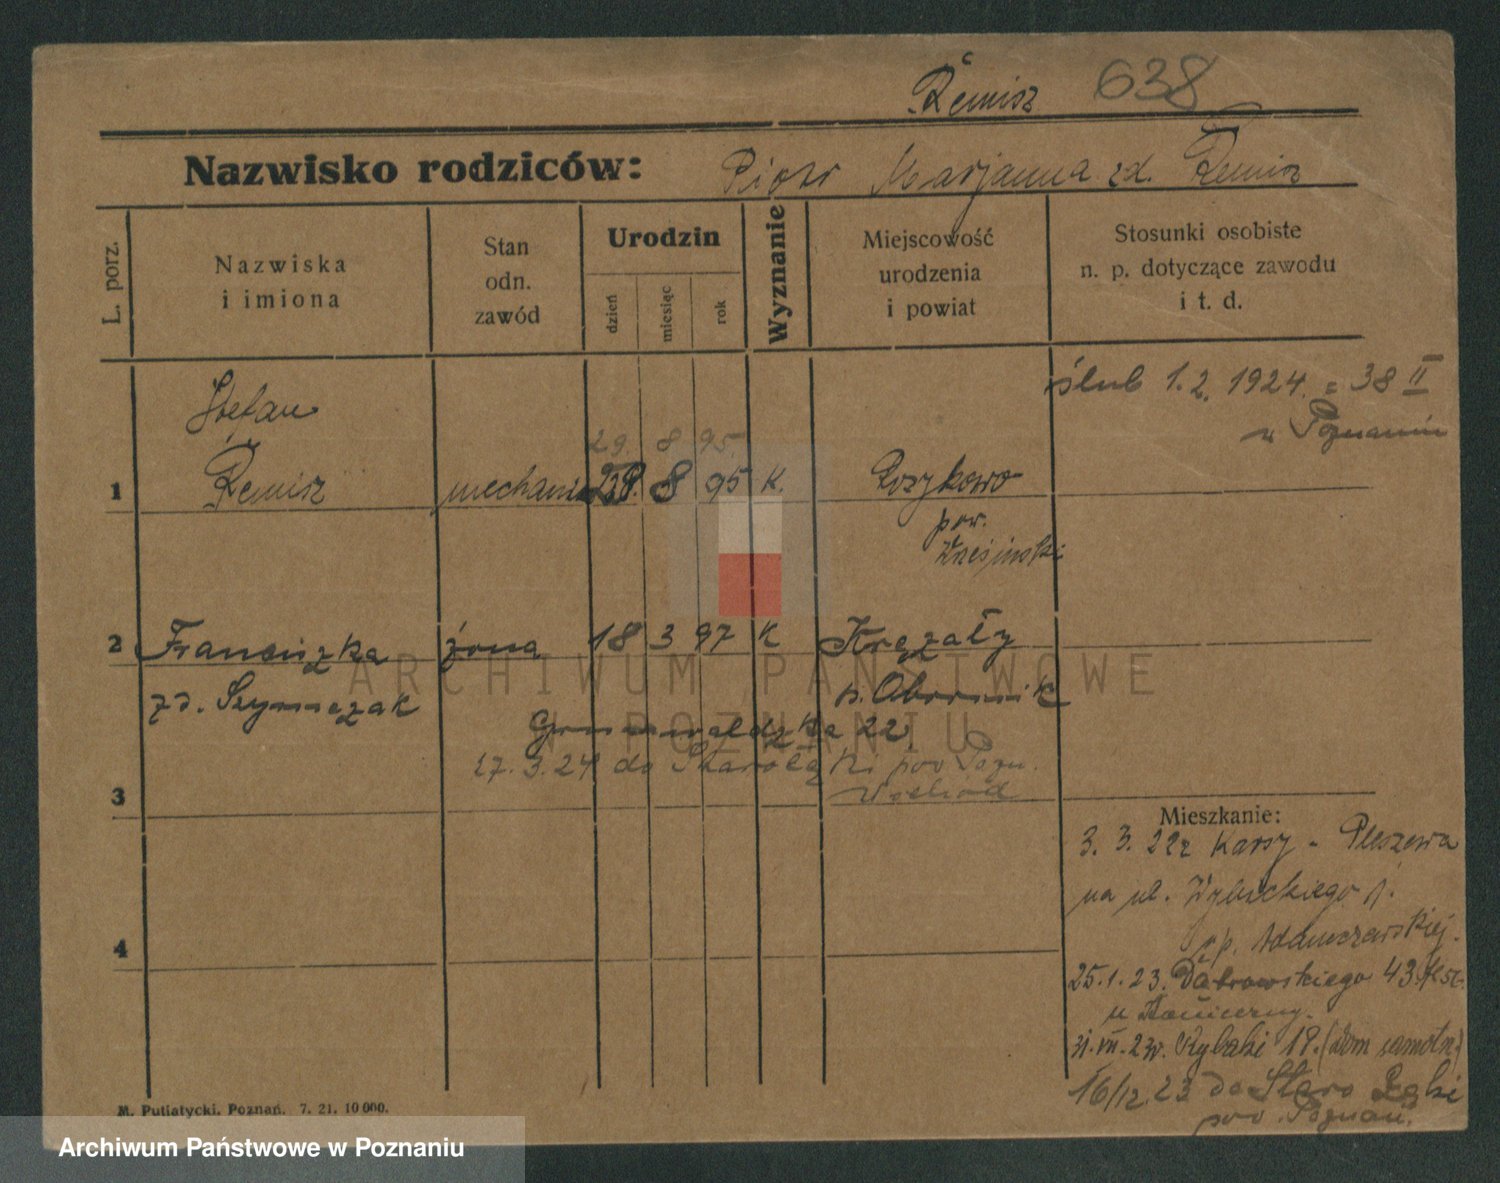 Remisz 638
Nazwisko rodziców: Piotr Marjanna zd. Remisz
L. porz.
Nazwiska
i imiona
Stan
odn.
zawód
Urodzin
dzień
miesiąc
rok
Wyznanie
Miejscowość
urodzenia
i powiat
Stosunki osobiste
n. p. dotyczące zawodu
i t. d.
ślub 1.2. 1924. = 38 II
w Poznaniu
Stefan
29. 8 95.
1 Remisz mechanik 8 95 K.
pow.
Wresiński
2 Franciszka żona 18 3 97 K Krężały
zd. Szymczak p. Obornik
Grunwaldzka 22
17.3.24 do Starołęki pow Pozn.
Wschód
3
Mieszkanie:
3. 3. 22 z Karsy - Pleszewa
na ul. Wybickiego
Adamczewskiej.
4
25.1.23. Dąbrowskiego 43.
31.VII.23 Rybaki 18. (dom samotn)
16/12.23 do Staro Łęki
pow. Poznań.
M. Putiatycki, Poznań. 7. 21. 10 000.
ARCHIWUM PAŃSTWOWE
W POZNANIU
Archiwum Państwowe w Poznaniu